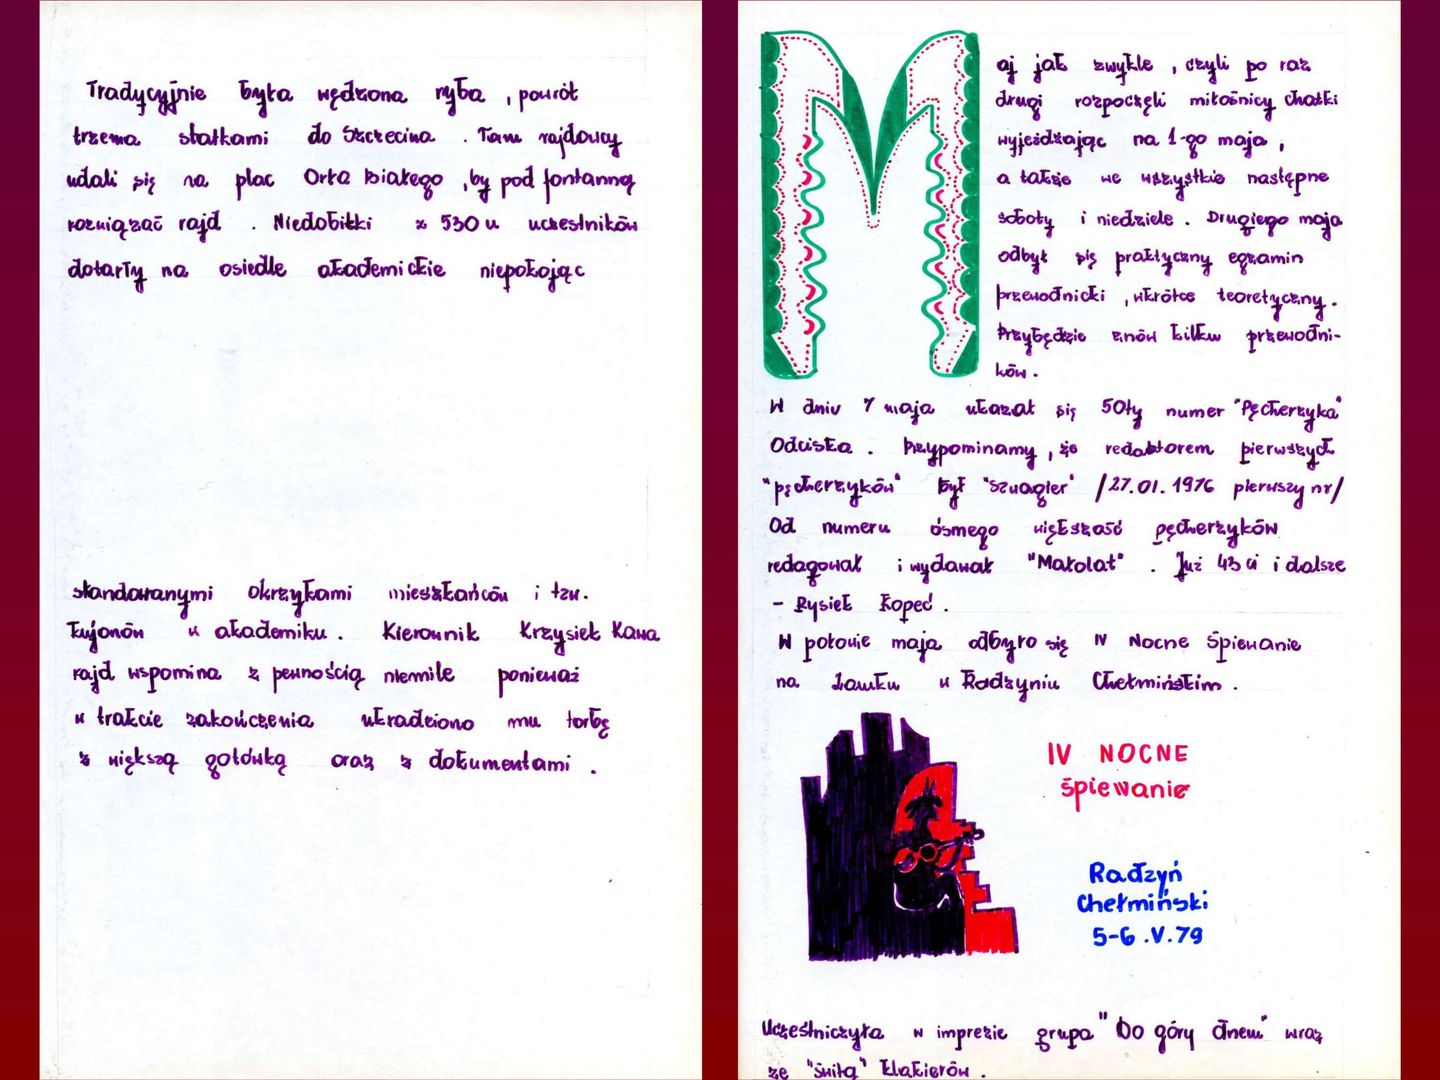 Tradycyjnie była wędzona ryba , powrót
trzema statkami do Szczecina . Tam rajdowcy
udali się na plac Orła Białego , by pod fontanną
rozwiązać rajd . Niedobitki z 530 u uczestników
dotarły na osiedle akademickie niepokojąc
skandowanymi okrzykami mieszkańców i tzw.
kujonów w akademiku . Kierownik Krzysiek Kawa
rajd wspomina z pewnością niemile ponieważ
w trakcie zakończenia ukradziono mu torbę
z większą gotówką oraz z dokumentami .
Maj jak zwykle , czyli po raz
drugi rozpoczęli miłośnicy chatki
wyjeżdżając na 1-go maja ,
a także we wszystkie następne
soboty i niedziele . Drugiego maja
odbył się praktyczny egzamin
przewodnicki , wkrótce teoretyczny .
Przybędzie znów kilku przewodni-
ków .
W dniu 7 maja ukazał się 50ty numer "Pęcherzyka"
Odciska . Przypominamy , że redaktorem pierwszych
"pęcherzyków" był "Szwagier" /27.01.1976 pierwszy nr/
Od numeru ósmego większość pęcherzyków
redagował i wydawał "Małolat" . Już 43 ci i dalsze
- Rysiek Kopeć .
W połowie maja odbyło się IV Nocne Śpiewanie
na zamku w Radzyniu Chełmińskim .
IV NOCNE
śpiewanie
Radzyń
Chełmiński
5-6 .V.79
Uczestniczyła w imprezie grupa "Do góry dnem" wraz
ze "świtą" klakierów .